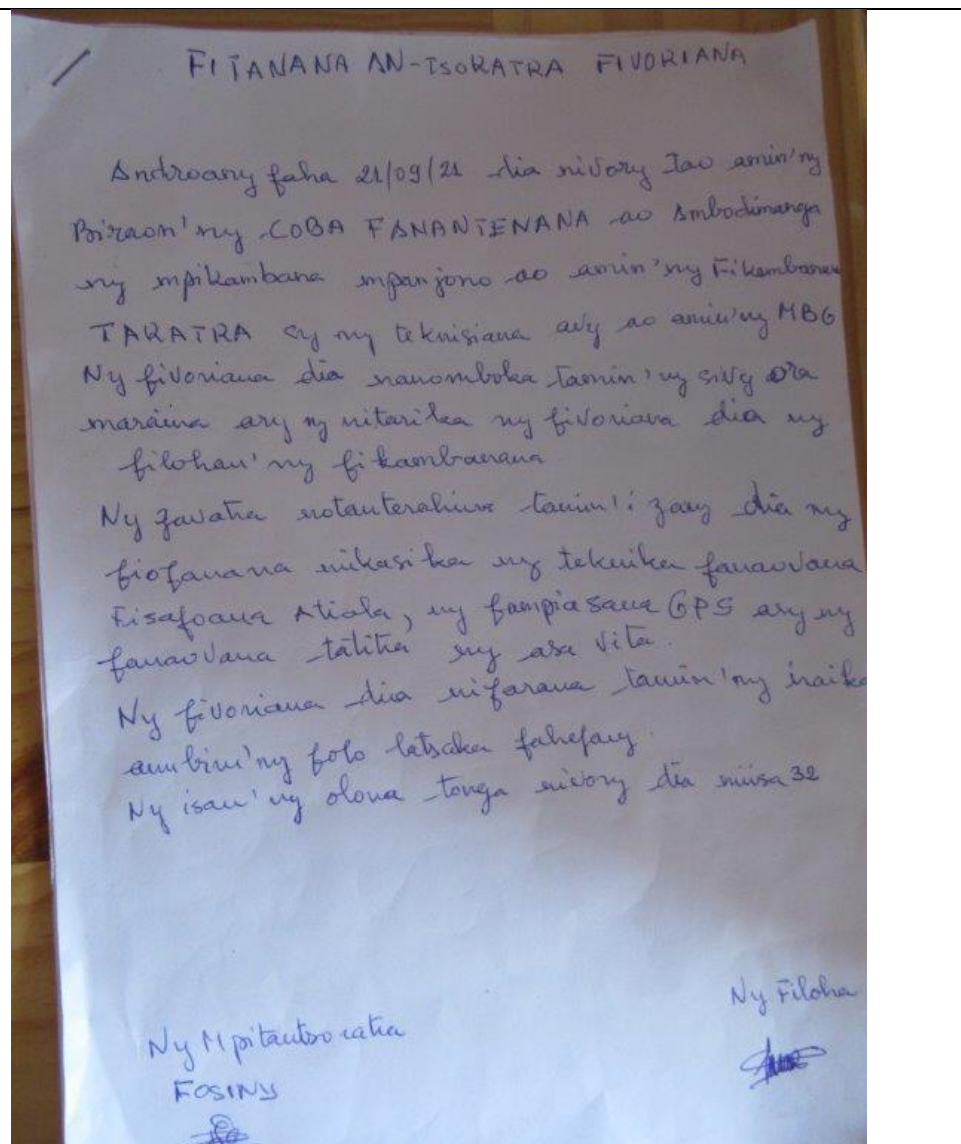 FITANANA AN-TSORATRA FIVORIANA
Androany faha 21/09/21 dia nivory tao amin'ny
Biraon'ny COBA FANANTENANA ao Ambodimanga
ny mpikambana mpanjono ao amin'ny Fikambanana
TARATRA sy ny teknisiana avy ao amin'ny MBG
Ny fivoriana dia nanomboka tamin'ny sivy ora
maraina ary ny nitarika ny fivoriana dia ny
filohan'ny fikambanana
Ny zavatra notanterahina tamin'izany dia ny
fiofanana mikasika ny teknika fanaovana
Fisafoana Atiala, ny fampiasana GPS ary ny
fanaovana tatitra ny asa vita.
Ny fivoriana dia nifarana tamin'ny iraika
ambin'ny folo latsaka fahefany.
Ny isan'ny olona tonga nivory dia miisa 32
Ny Filoha
Ny Mpitantsoratra
FOSINY